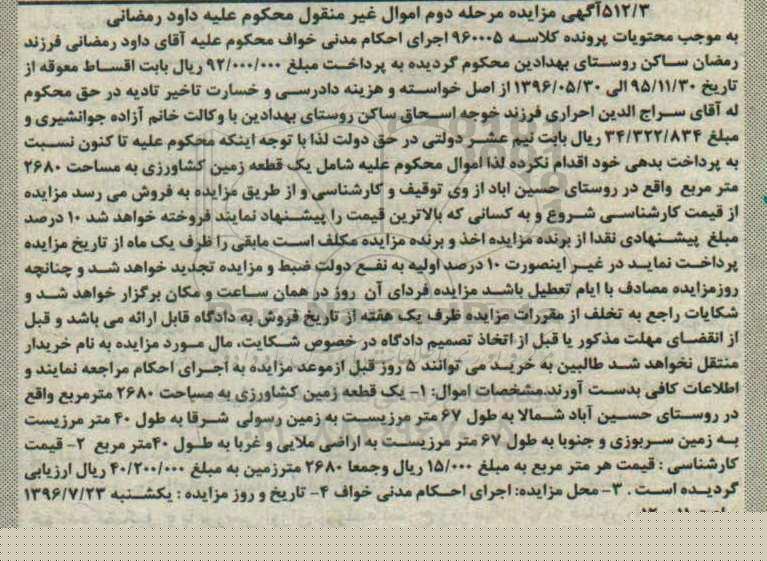 ۵۱۲/۳آگهی مزایده مرحله دوم اموال غیر منقول محکوم علیه داود رمضانی
به موجب محتویات پرونده کلاسه ۹۶۰۰۰۵ اجرای احکام مدنی خواف محکوم علیه آقای داود رمضانی فرزند
رمضان ساکن روستای بهدادین محکوم گردیده به پرداخت مبلغ ۹۲/۰۰۰/۰۰۰ ریال بابت اقساط معوقه از
تاریخ ۹۵/۱۱/۳۰ الی ۱۳۹۶/۰۵/۳۰ از اصل خواسته و هزینه دادرسی و خسارت تاخیر تادیه در حق محکوم
له آقای سراج الدین احراری فرزند خوجه اسحاق ساکن روستای بهدادین با وکالت خانم آزاده جوانشیری و
مبلغ ۳۴/۳۲۲/۸۳۴ ریال بابت نیم عشر دولتی در حق دولت لذا با توجه اینکه محکوم علیه تا کنون نسبت
به پرداخت بدهی خود اقدام نکرده لذا اموال محکوم علیه شامل یک قطعه زمین کشاورزی به مساحت ۲۶۸۰
متر مربع واقع در روستای حسین اباد از وی توقیف و کارشناسی و از طریق مزایده به فروش می رسد مزایده
از قیمت کارشناسی شروع و به کسانی که بالاترین قیمت را پیشنهاد نمایند فروخته خواهد شد ۱۰ درصد
مبلغ پیشنهادی نقدا از برنده مزایده اخذ و برنده مزایده مکلف است مابقی را ظرف یک ماه از تاریخ مزایده
پرداخت نماید در غیر اینصورت ۱۰ درصد اولیه به نفع دولت ضبط و مزایده تجدید خواهد شد و چنانچه
روزمزایده مصادف با ایام تعطیل باشد مزایده فردای آن روز در همان ساعت و مکان برگزار خواهد شد و
شکایات راجع به تخلف از مقررات مزایده ظرف یک هفته از تاریخ فروش به دادگاه قابل ارائه می باشد و قبل
از انقضای مهلت مذکور یا قبل از اتخاذ تصمیم دادگاه در خصوص شکایت، مال مورد مزایده به نام خریدار
منتقل نخواهد شد طالبین به خرید می توانند ۵ روز قبل ازموعد مزایده به اجرای احکام مراجعه نمایند و
اطلاعات کافی بدست آورند.مشخصات اموال: ۱- یک قطعه زمین کشاورزی به مساحت ۲۶۸۰ مترمربع واقع
در روستای حسین آباد شمالا به طول ۶۷ متر مرزیست به زمین رسولی شرقا به طول ۴۰ متر مرزیست
به زمین سربوزی و جنوبا به طول ۶۷ متر مرزیست به اراضی ملایی و غربا به طول ۴۰متر مربع ۲- قیمت
کارشناسی : قیمت هر متر مربع به مبلغ ۱۵/۰۰۰ ریال وجمعا ۲۶۸۰ مترزمین به مبلغ ۴۰/۲۰۰/۰۰۰ ریال ارزیابی
گردیده است . ۳- محل مزایده: اجرای احکام مدنی خواف ۴- تاریخ و روز مزایده : یکشنبه ۱۳۹۶/۷/۲۳